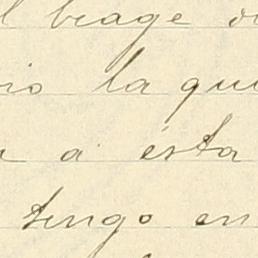 l brage d
io la qui
a á ésta
tengo en